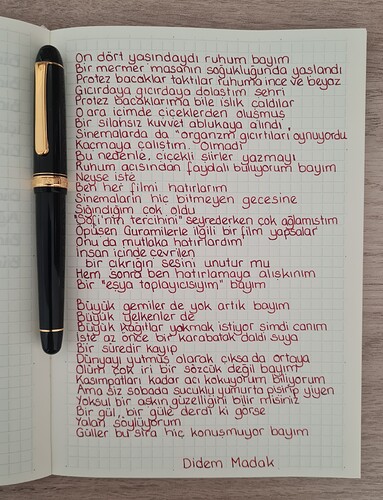 On dört yaşındaydı ruhum bayım
Bir mermer masanın soğukluğunda yaşlandı
Protez bacaklar taktılar ruhuma ince ve beyaz
Gıcırdaya gıcırdaya dolaştım şehri
Protez bacaklarıma bile ıslık çaldılar
O ara içimde çiçeklerden oluşmuş
Bir silahsız kuvvet ablukaya alındı
Sinemalarda da "organzm gıcırtıları oynuyordu
Kaçmaya çalıştım. Olmadı
Bu nedenle, çiçekli şiirler yazmayı
Ruhum açısından faydalı buluyorum bayım
Neyse işte
Ben her filmi hatırlarım
Sinemaların hiç bitmeyen gecesine
Sığındığım çok oldu
"Sofi'nin tercihini" seyrederken çok ağlamıştım
Öpüşen Guramilerle ilgili bir film yapsalar
Onu da mutlaka hatırlardım
İnsan içinde çevrilen
bir çıkrığın sesini unutur mu
Hem sonra ben hatırlamaya alışkınım
Bir "eşya toplayıcısıyım" bayım
Büyük gemiler de yok artık bayım
Büyük yelkenler de
Büyük kağıtlar yakmak istiyor şimdi canım
İşte az önce bir karabatak daldı suya
Bir süredir kayıp
Dünyayı yutmuş olarak çıksa da ortaya
Ölüm çok iri bir sözcük değil bayım
Kasımpatları kadar acı kokuyorum biliyorum
Ama siz sobada sucuklu yumurta pişirip yiyen
Yoksul bir aşkın güzelliğini bilir misiniz
Bir gül, bir güle derdi ki görse
Yalan söylüyorum
Güller bu sıra hiç konuşmuyor bayım
Didem Madak